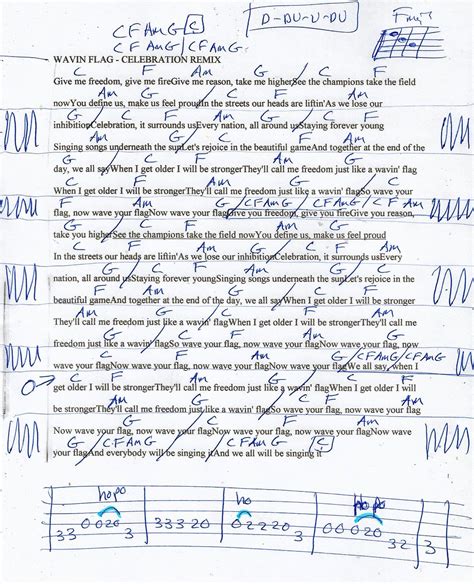 C F Am G C
C F Am G / C F Am G
D-DU-U-DU
WAVIN FLAG - CELEBRATION REMIX
C F Am G C
Give me freedom, give me fireGive me reason, take me higherSee the champions take the field
F Am G C F
nowYou define us, make us feel proudIn the streets our heads are liftin'As we lose our
Am G C F Am
inhibitionCelebration, it surrounds usEvery nation, all around usStaying forever young
G C F Am
Singing songs underneath the sunLet's rejoice in the beautiful gameAnd together at the end of the
G C F Am G
day, we all sayWhen I get older I will be strongerThey'll call me freedom just like a wavin' flag
C F Am G C F
When I get older I will be strongerThey'll call me freedom just like a wavin' flagSo wave your
Am G / C F Am G / C F Am G / C F Am
flag, now wave your flagNow wave your flagGive you freedom, give you fireGive you reason,
take you higherSee the champions take the field nowYou define us, make us feel proud
In the streets our heads are liftin'As we lose our inhibitionCelebration, it surrounds usEvery
nation, all around usStaying forever youngSinging songs underneath the sunLet's rejoice in the
beautiful gameAnd together at the end of the day, we all sayWhen I get older I will be stronger
They'll call me freedom just like a wavin' flagWhen I get older I will be strongerThey'll call me
freedom just like a wavin' flagSo wave your flag, now wave your flagNow wave your flag, now
wave your flagNow wave your flag, now wave your flagNow wave your flagWe all say, when I
get older I will be strongerThey'll call me freedom just like a wavin' flagWhen I get older I will
be strongerThey'll call me freedom just like a wavin' flagSo wave your flag, now wave your flag
Now wave your flag, now wave your flagNow wave your flag, now wave your flagNow wave
your flagAnd everybody will be singing itAnd we all will be singing it
hopo ho
33 0020 3 33320 02220 3 00020 32 3